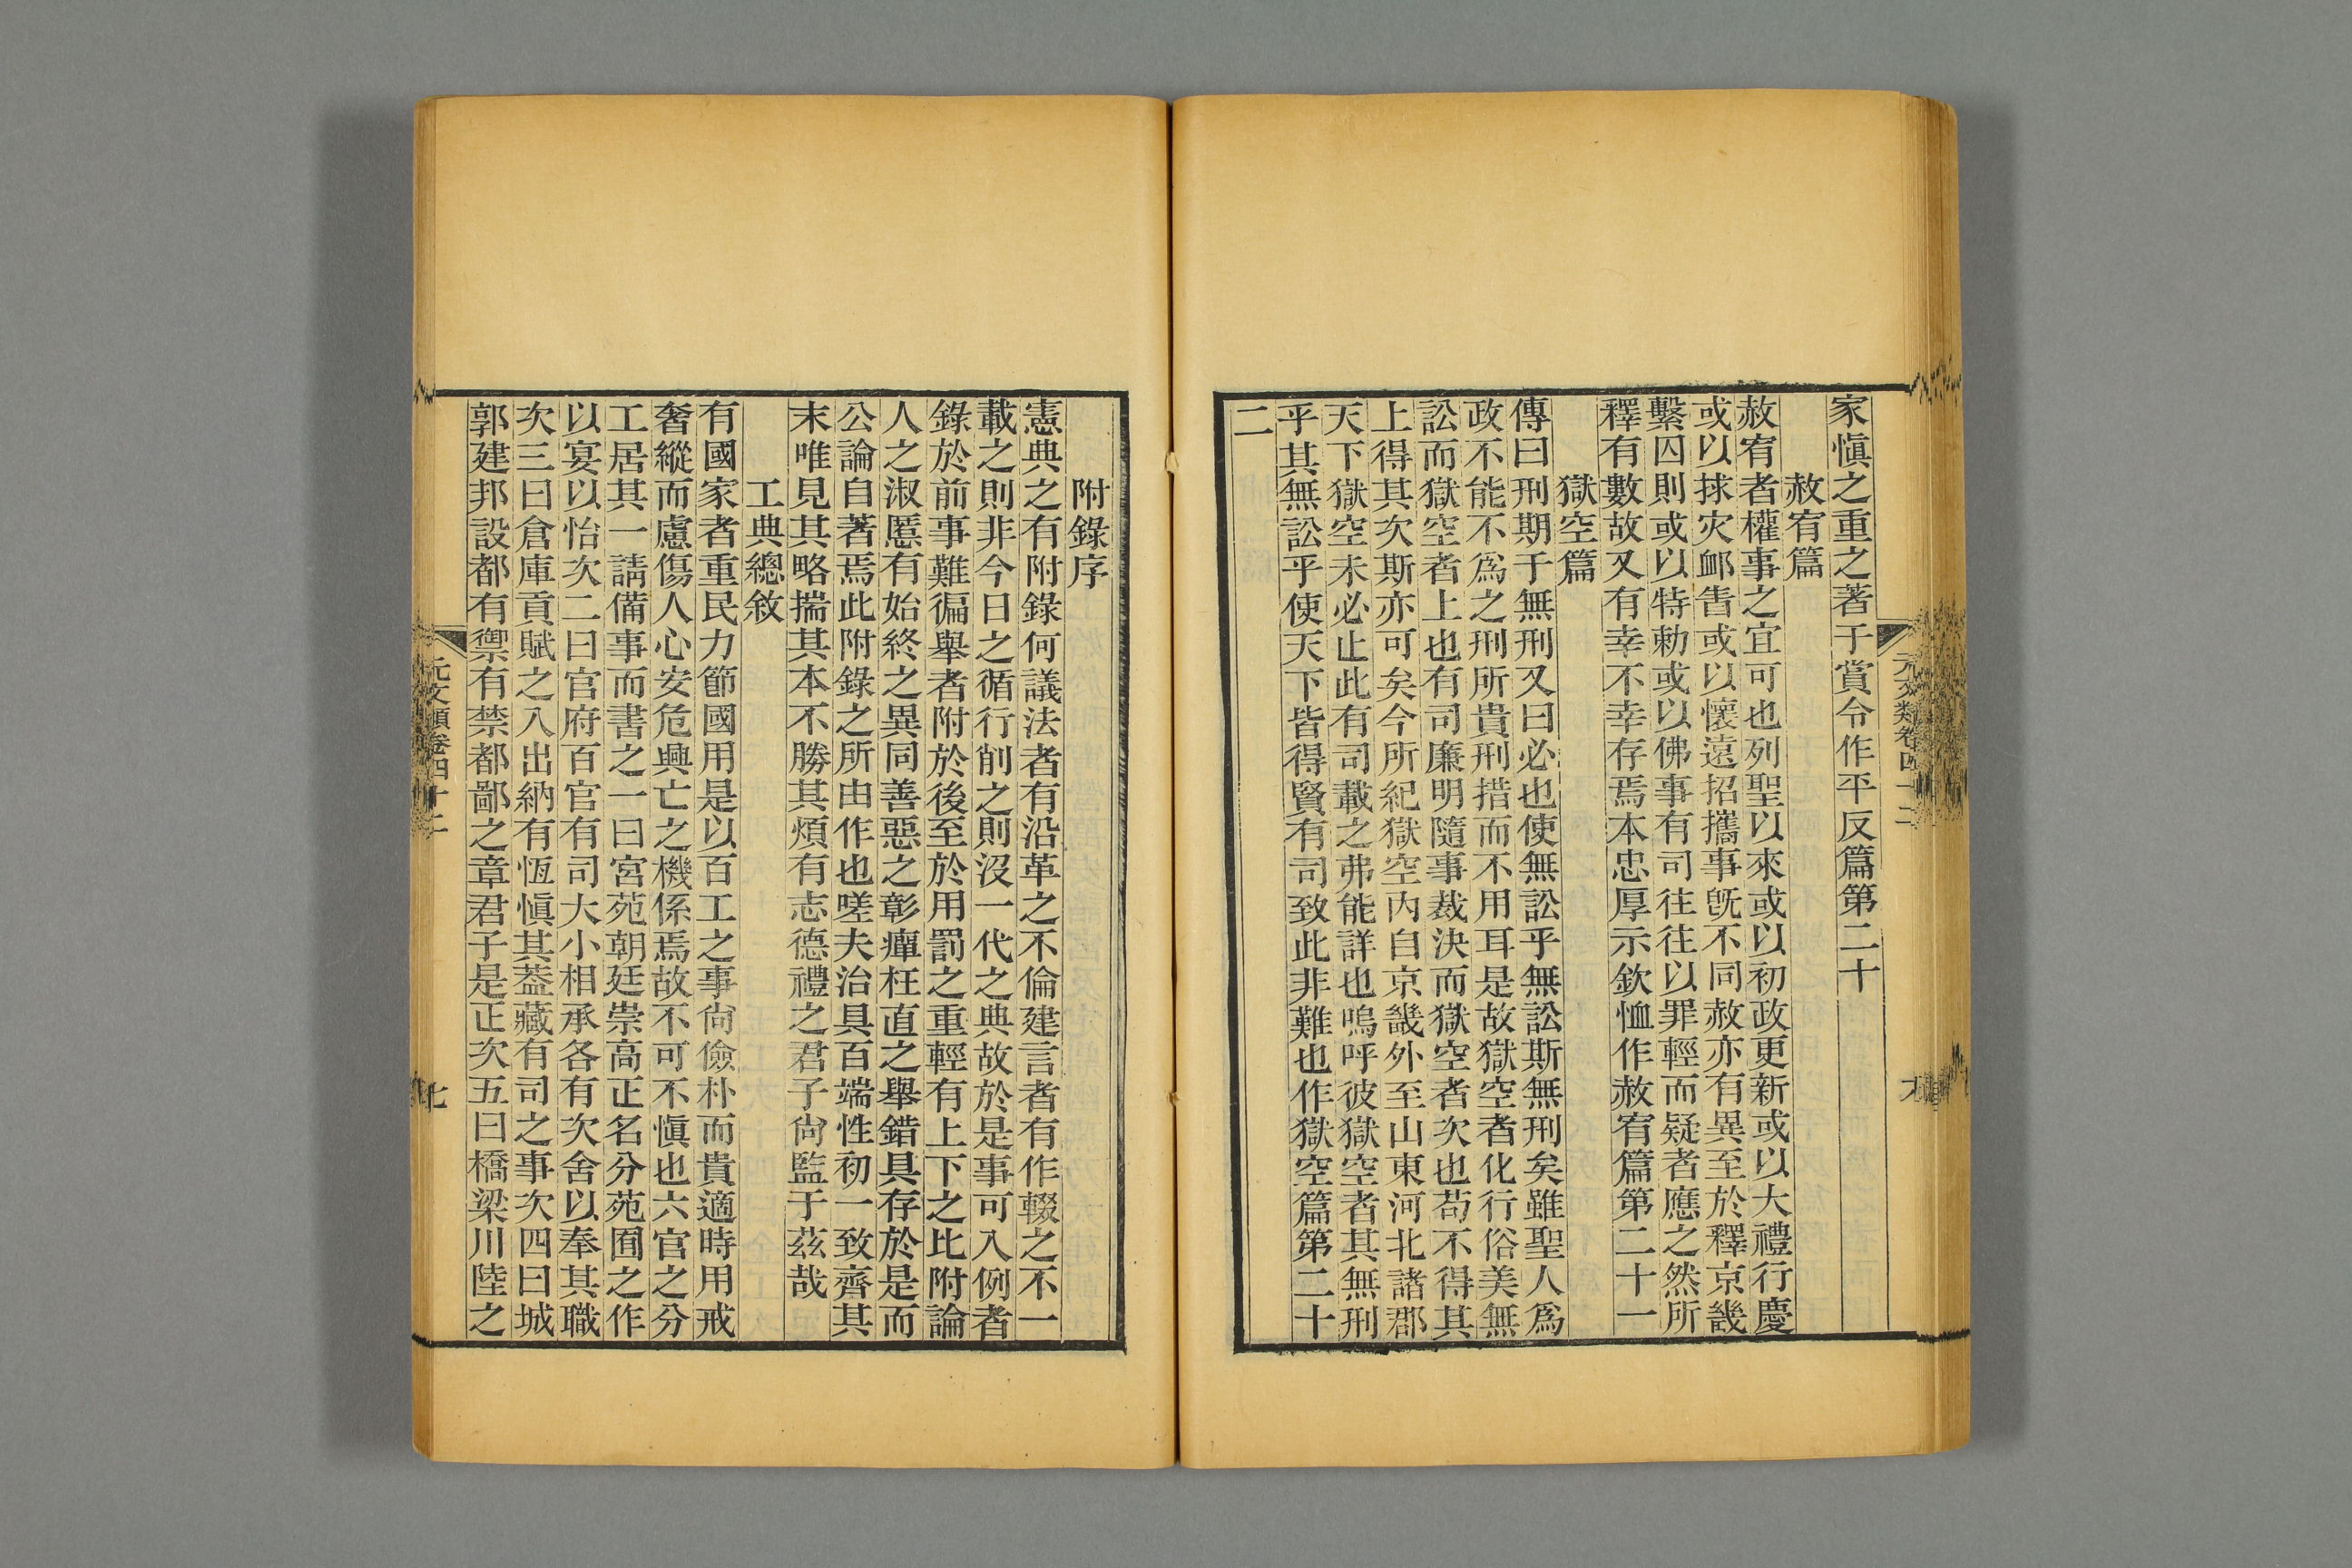 家慎之重之著于賞令作平反篇第二十
赦宥篇
赦宥者權事之宜可也列聖以來或以初政更新或以大禮行慶
或以捄灾䘏眚或以懷遠招攜事旣不同赦亦有異至於釋京畿
繫囚則或以特勅或以佛事有司往往以罪輕而疑者應之然所
釋有數故又有幸不幸存焉本忠厚示欽恤作赦宥篇第二十一
獄空篇
傳曰刑期于無刑又曰必也使無訟乎無訟斯無刑矣雖聖人爲
政不能不爲之刑所貴刑措而不用耳是故獄空者化行俗美無
訟而獄空者上也有司廉明隨事裁決而獄空者次也苟不得其
上得其次斯亦可矣今所紀獄空內自京畿外至山東河北諸郡
天下獄空未必止此有司載之弗能詳也嗚呼彼獄空者其無刑
乎其無訟乎使天下皆得賢有司致此非難也作獄空篇第二十
二
附錄序
憲典之有附錄何議法者有沿革之不倫建言者有作輟之不一
載之則非今日之循行削之則沒一代之典故於是事可入例者
錄於前事難徧舉者附於後至於用罰之重輕有上下之比附論
人之淑慝有始終之異同善惡之彰癉枉直之舉錯具存於是而
公論自著焉此附錄之所由作也嗟夫治具百端性初一致齊其
末唯見其略揣其本不勝其煩有志德禮之君子尙監于茲哉
工典總敘
有國家者重民力節國用是以百工之事尙儉朴而貴適時用戒
奢縱而慮傷人心安危興亡之機係焉故不可不愼也六官之分
工居其一請備事而書之一曰宮苑朝廷崇高正名分苑囿之作
以宴以怡次二曰官府百官有司大小相承各有次舍以奉其職
次三曰倉庫貢賦之入出納有恆愼其葢藏有司之事次四曰城
郭建邦設都有禦有禁都鄙之章君子是正次五曰橋梁川陸之
元文類卷四十二
七